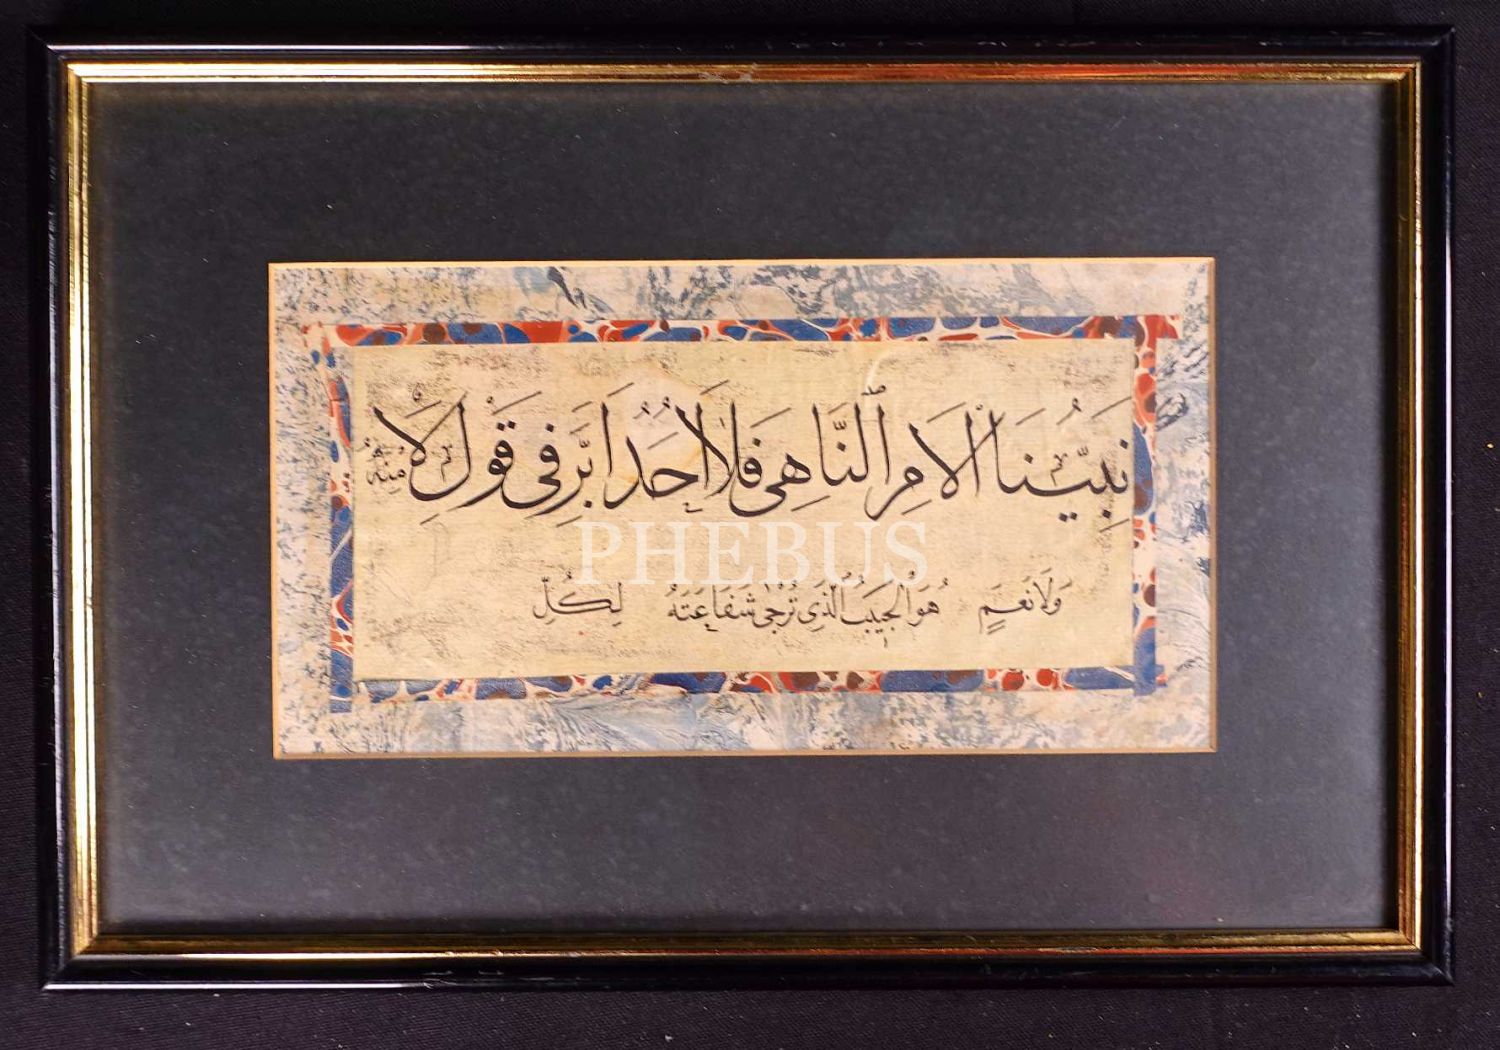 نَبِيُّنَا الْاٰمِرُ النَّاهِى فَلَا اَحَدٌ اَبَرَّ فِى قَوْلِ لَا مِنْهُ
وَلَا نَعَمٍ هُوَ الْحَبِيبُ الَّذِى تُرْجٰى شَفَاعَتُهُ لِكُلِّ
PHEBUS